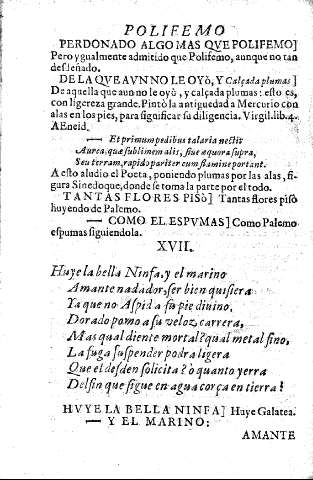 POLIFEMO
PERDONADO ALGO MAS QVE POLIFEMO]
Pero ygualmente admitido que Polifemo, aunque no tan
desdeñado.
DE LA QVE AVN NO LE OYò, Y Calçada plumas]
De aquella que aun no le oyò, y calçada plumas: esto es,
con ligereza grande. Pintò la antiguedad a Mercurio con
alas en los pies, para significar su diligencia. Virgil. lib. 4.
AEneid.
— Et primum pedibus talaria nectit
Aurea, quæ sublimem alis, siue æquora supra,
Seu terram, rapido pariter cum flamine portant.
A esto aludio el Poeta, poniendo plumas por las alas, fi-
gura Sinedoque, donde se toma la parte por el todo.
TANTAS FLORES PISò] Tantas flores pisò
huyendo de Palemo.
— COMO EL ESPVMAS] Como Palemo
espumas siguiendola.
XVII.
Huye la bella Ninfa, y el marino
Amante nadador, ser bien quisiera
Ya que no Aspid a su pie diuino,
Dorado pomo a su veloz carrera,
Mas qual diente mortal? qual metal fino,
La fuga suspender podra ligera
Que el desden solicita? ò quanto yerra
Delfin que sigue en agua corça en tierra!
HVYE LA BELLA NINFA] Huye Galatea.
— Y EL MARINO:
AMANTE